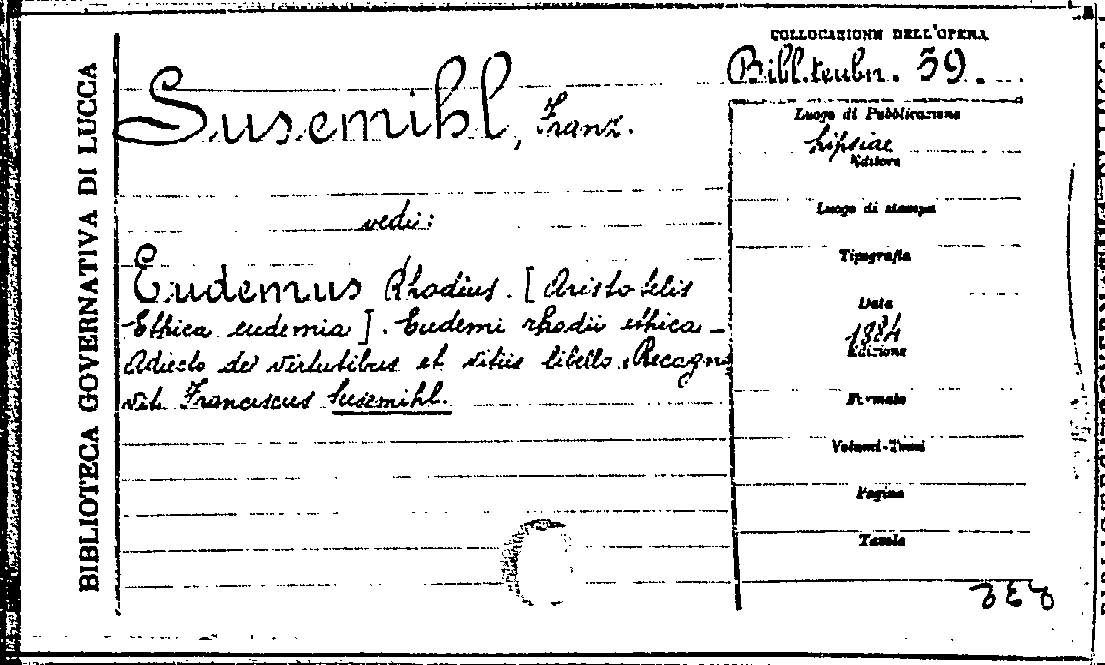 COLLOCAZIONE DELL'OPERA
Bibl. teubn. 59.
BIBLIOTECA GOVERNATIVA DI LUCCA
Susemihl, Franz.
vedi:
Eudemus Rhodius. [Aristotelis
Ethica eudemia]. Eudemi rhodii ethica –
Adiecto de virtutibus et vitiis libello. Recogno
vit Franciscus Susemihl.
Luogo di Pubblicazione
Lipsiae
Editore
Luogo di stampa
Tipografia
Data
1884
Edizione
Formato
Volumi-Tomi
Pagine
Tavole